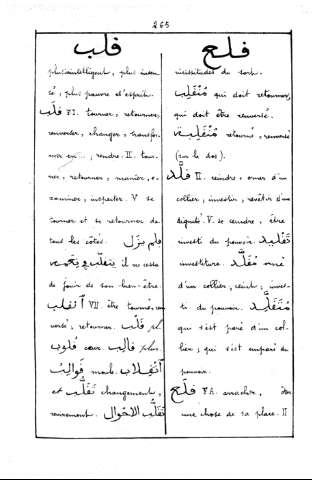 265
فلب
plus intelligent, plus insen-
sé, plus pauvre d'esprit.
فلب FI. tourner, retourner,
renverser, changer, transfor-
mer en..., rendre. II. tour-
ner, retourner, manier, e-
xaminer, inspecter. V se
tourner et se retourner de
tous les côtés. فلم يزل
يتفلب و il ne cessa
de jouir de son bien-être.
انفلب VII être tourné, ren-
versé, retourner. فلب pl.
فلوب cœur. فالب plur.
فوالب moule. انفلاب
et تفلب changement,
revirement. تفلب الاحوال
فلع
vicissitudes du sort.
منفلب qui doit retourner,
qui doit être renversé.
منفلب retourné, renversé
(sur le dos).
فلد II. ceindre, orner d'un
collier, investir, revêtir d'une
dignité. V. se ceindre, être
investi du pouvoir. تفليد
investiture. مفلد orné
d'un collier, ceint; inves-
ti du pouvoir. متفلد
qui s'est paré d'un col-
lier; qui s'est emparé du
pouvoir.
فلع FA. arracher, ôter
une chose de sa place. II